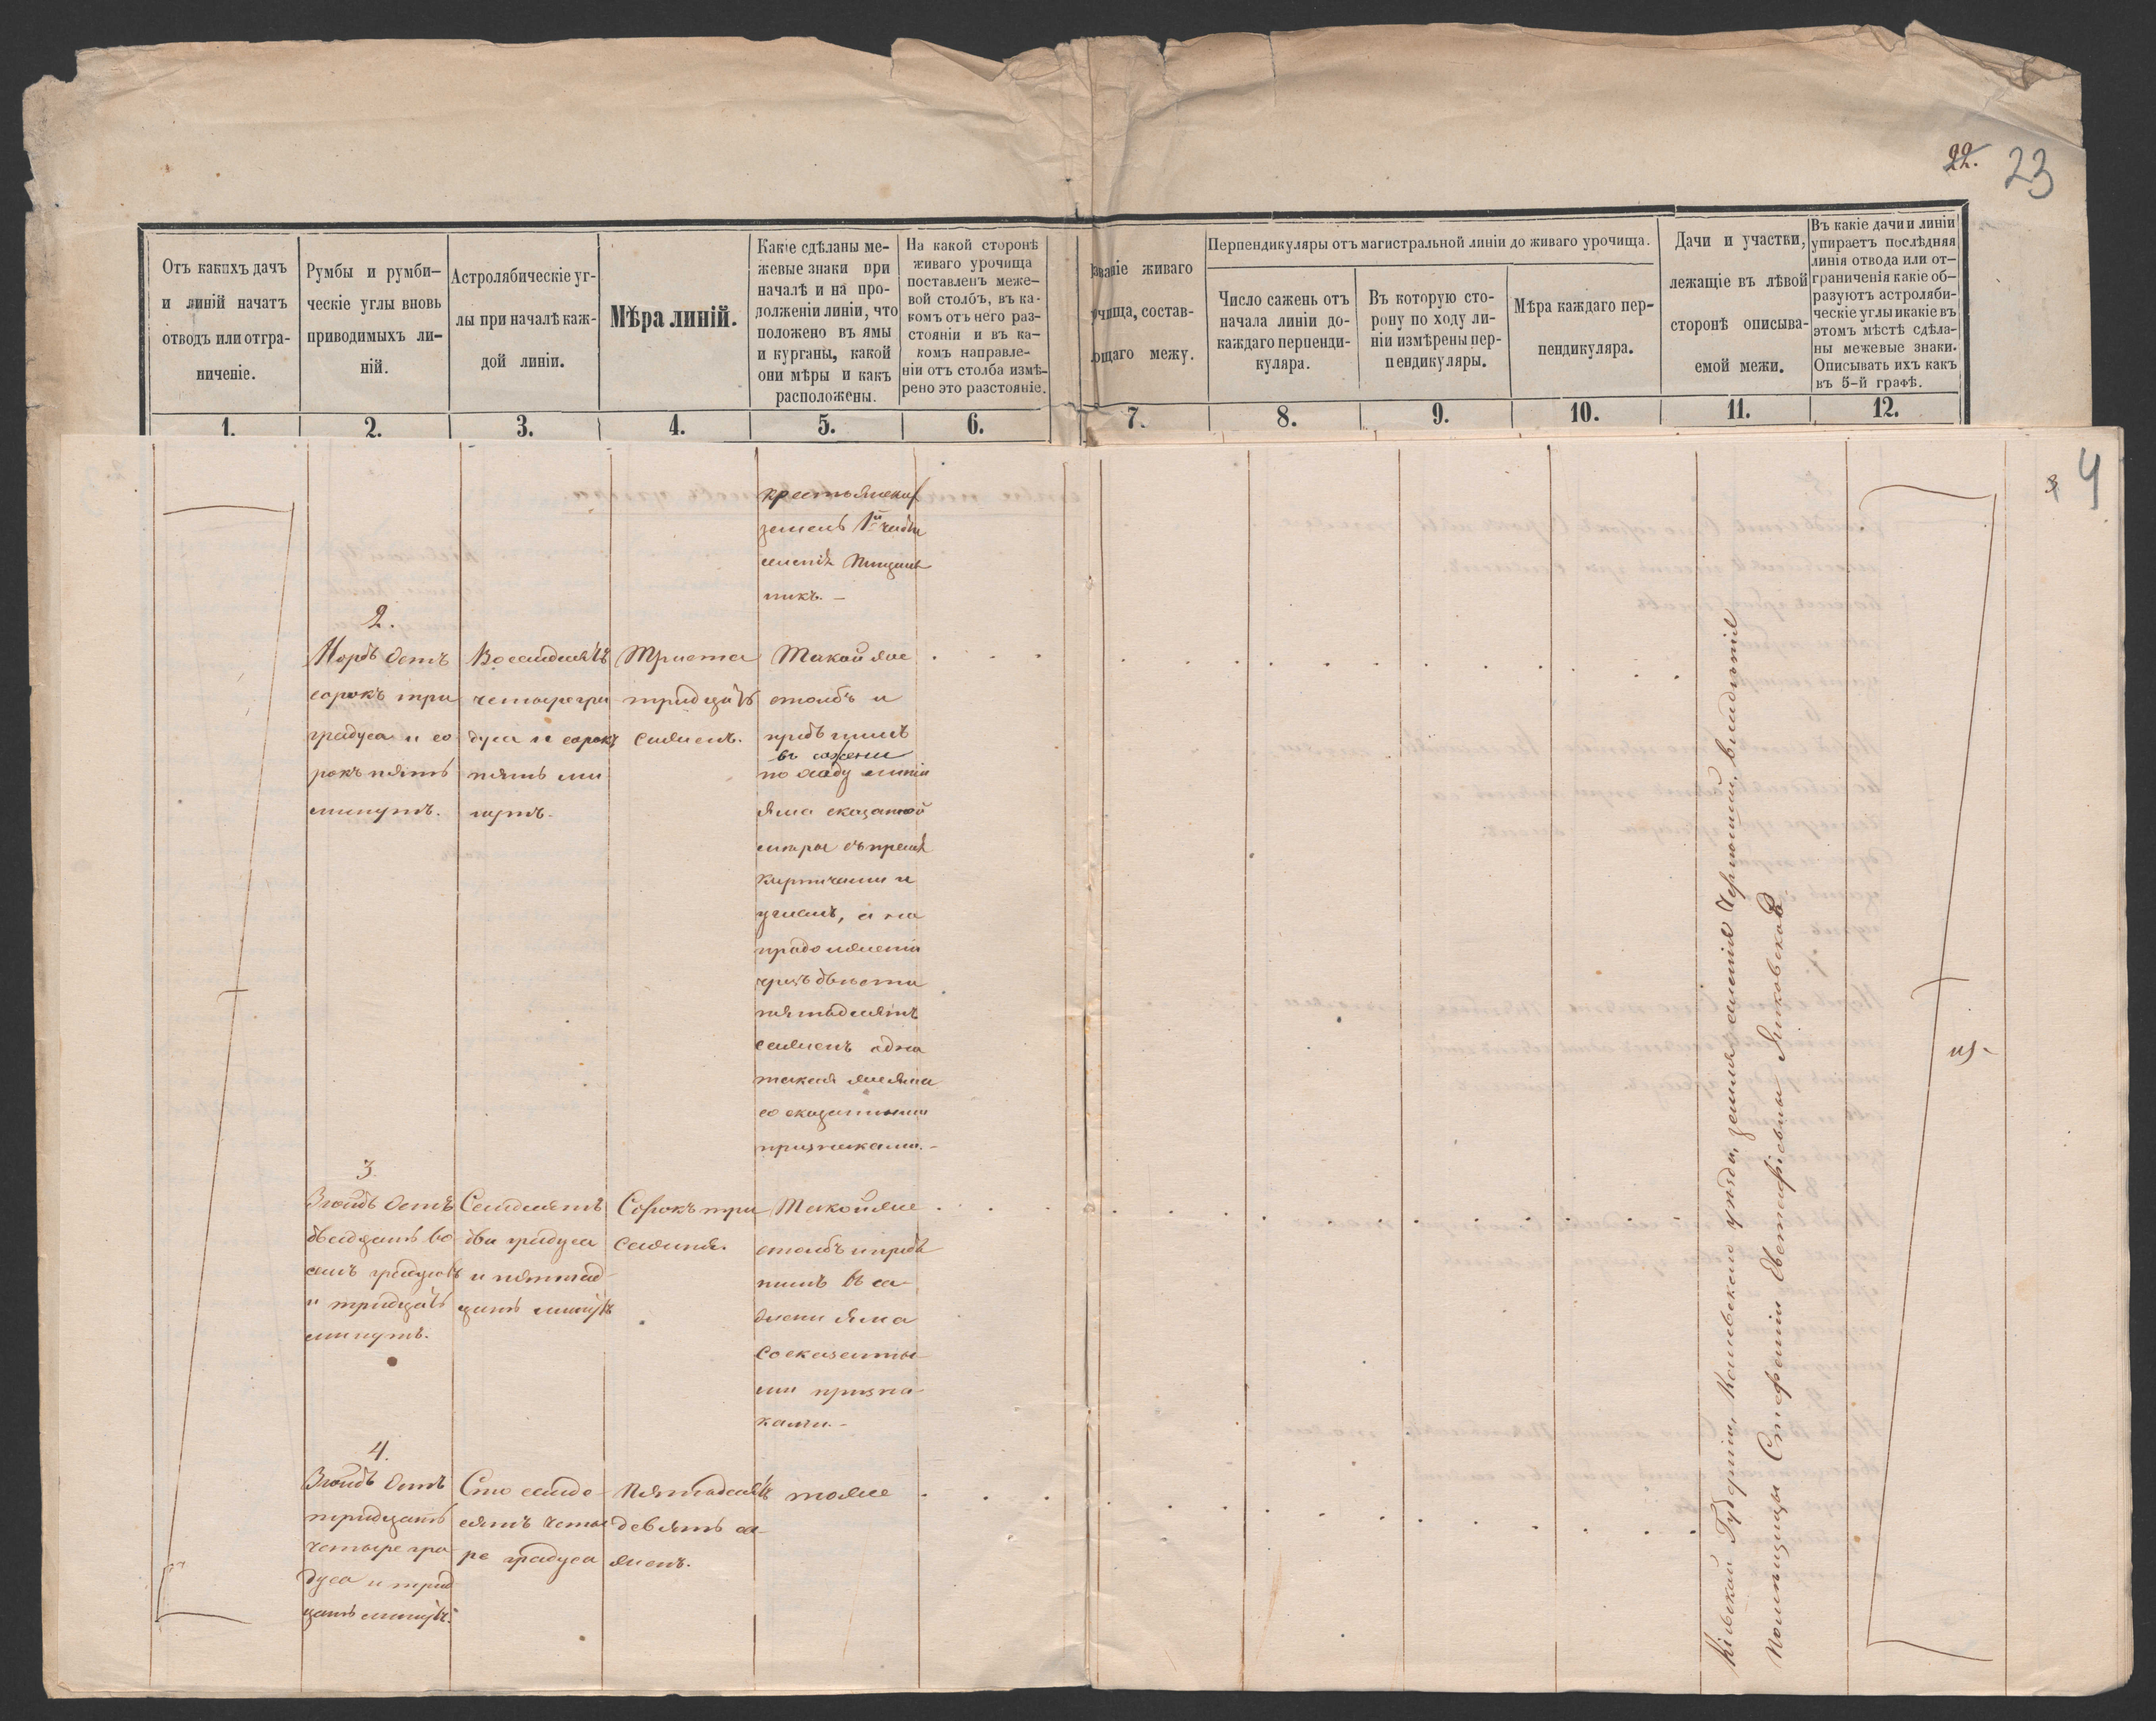 22. 23
Отъ какихъ дачъ
и линій начатъ
отводъ или отгра-
ниченіе.
Румбы и румби-
ческіе углы вновь
приводимыхъ ли-
ній.
Астролябическіе уг-
лы при началѣ каж-
дой линіи.
Мѣра линій.
Какіе сдѣланы ме-
жевые знаки при
началѣ и на про-
долженіи линіи, что
положено въ ямы
и курганы, какой
они мѣры и какъ
расположены.
На какой сторонѣ
живаго урочища
поставленъ меже-
вой столбъ, въ ка-
комъ отъ него раз-
стояніи и въ ка-
комъ направле-
ніи отъ столба измѣ-
рено это разстояніе.
званіе живаго
учища, состав-
ющаго межу.
Перпендикуляры отъ магистральной линіи до живаго урочища.
Число сажень отъ
начала линіи до-
каждаго перпенди-
куляра.
Въ которую сто-
рону по ходу ли-
ніи измѣрены пер-
пендикуляры.
Мѣра каждаго пер-
пендикуляра.
Дачи и участки,
лежащіе въ лѣвой
сторонѣ описыва-
емой межи.
Въ какіе дачи и линіи
упираетъ послѣдняя
линія отвода или от-
граниченія какіе об-
разуютъ астроляби-
ческіе углы и какіе въ
этомъ мѣстѣ сдѣла-
ны межевые знаки.
Описывать ихъ какъ
въ 5-й графѣ.
1. 2. 3. 4. 5. 6. 7. 8. 9. 10. 11. 12.
3 4
крестьянских
земель 1й части
имѣнія
никъ. –
2.
Нордъ Остъ
сорокъ три
градуса и со
рокъ пять
минутъ.
Восемдесятъ
четыре гра
дуса и сорокъ
пять ми
нутъ.
Триста
тридцать
сажень.
Такой же
столбъ и
предъ нимъ
въ сажени
по ходу линіи
яма сказанной
мѣры съ тремя
кирпичами и
углемъ, а на
продолженіи
чрезъ двѣсти
пятьдесятъ
сажень одна
такая же яма
со сказанными
признаками. –
3.
Зюйдъ Остъ
двадцать во
семь градусовъ
и тридцать
минутъ.
Семдесятъ
два градуса
и пятнад
цать минутъ
Сорокъ три
сажени.
Такой же
столбъ и предъ
нимъ въ са-
жени яма
со сказанны-
ми призна-
ками. –
4.
Зюйдъ Остъ
тридцать
четыре гра
дуса и трид
цать минутъ.
Сто семде-
сятъ четы
ре градуса
Пятьдесятъ
девять са-
жень.
тоже
Кіевской Губерніи, Каневскаго уѣзда, земля имѣнія владѣнія
Помѣщицы Стефаніи Евстафіевны Янковской
из-